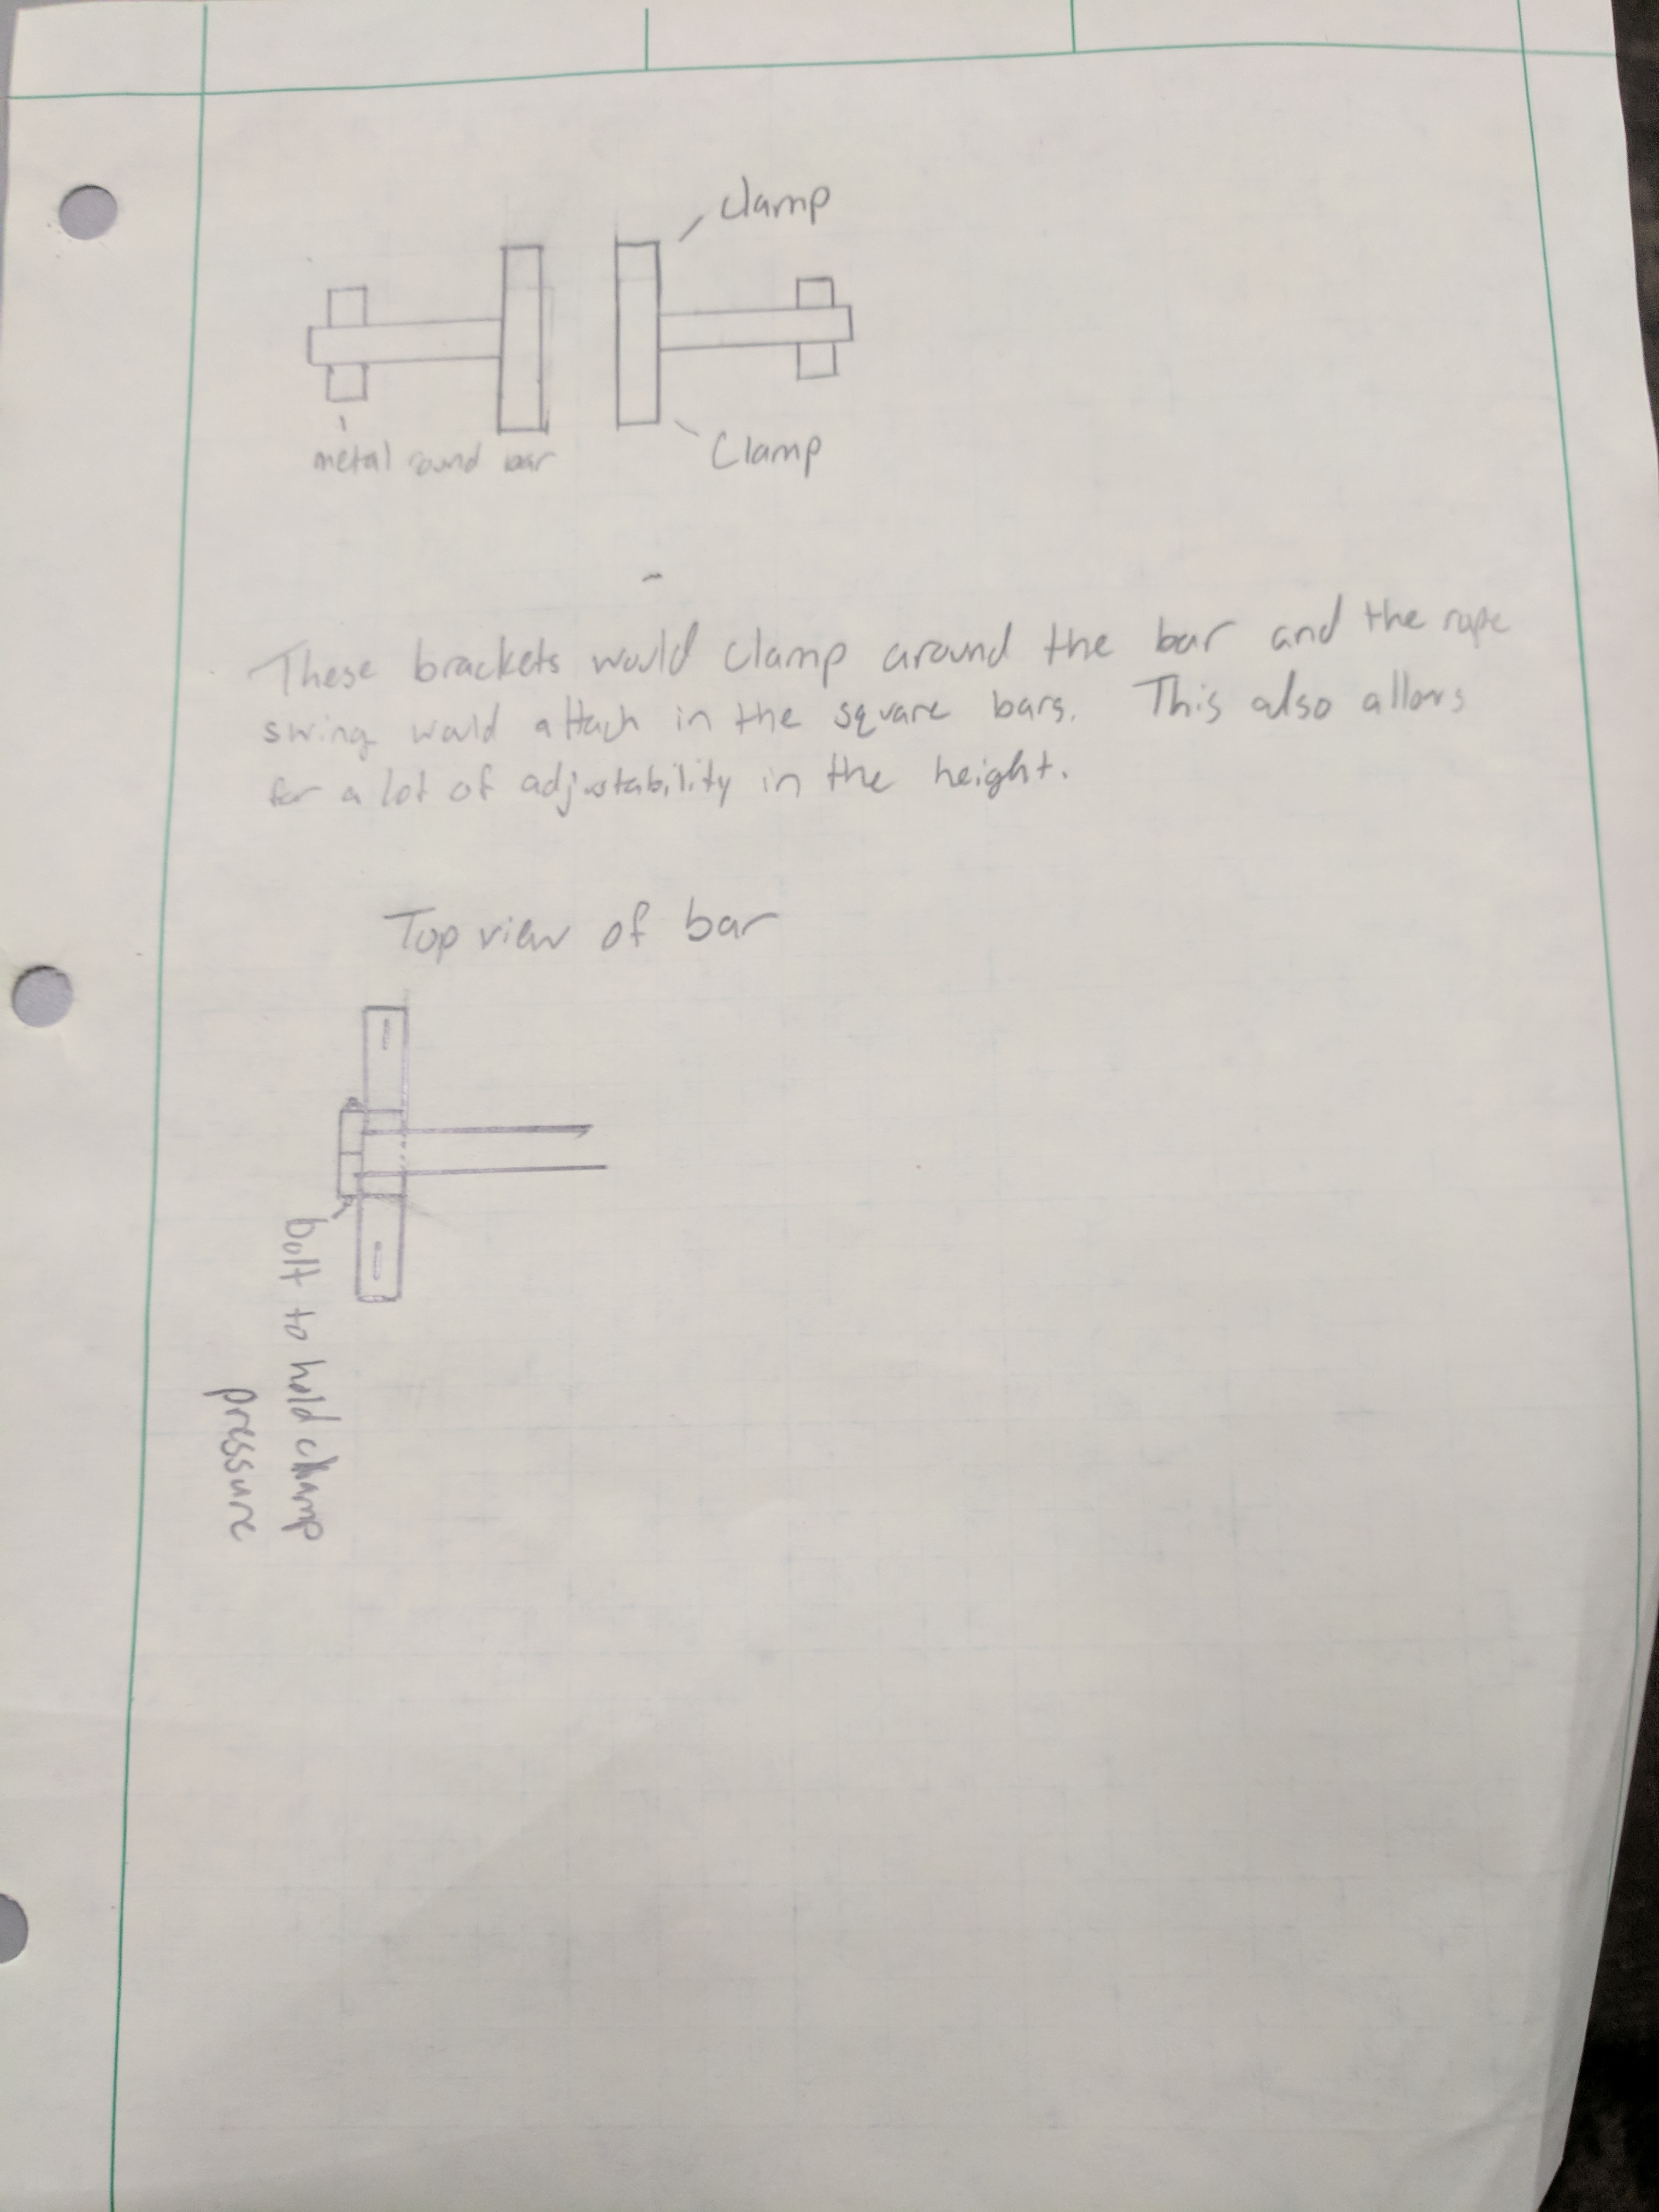 clamp
metal round bar
Clamp
These brackets would clamp around the bar and the rope
swing would attach in the square bars. This also allows
for a lot of adjustability in the height.
Top view of bar
bolt to hold clamp
pressure